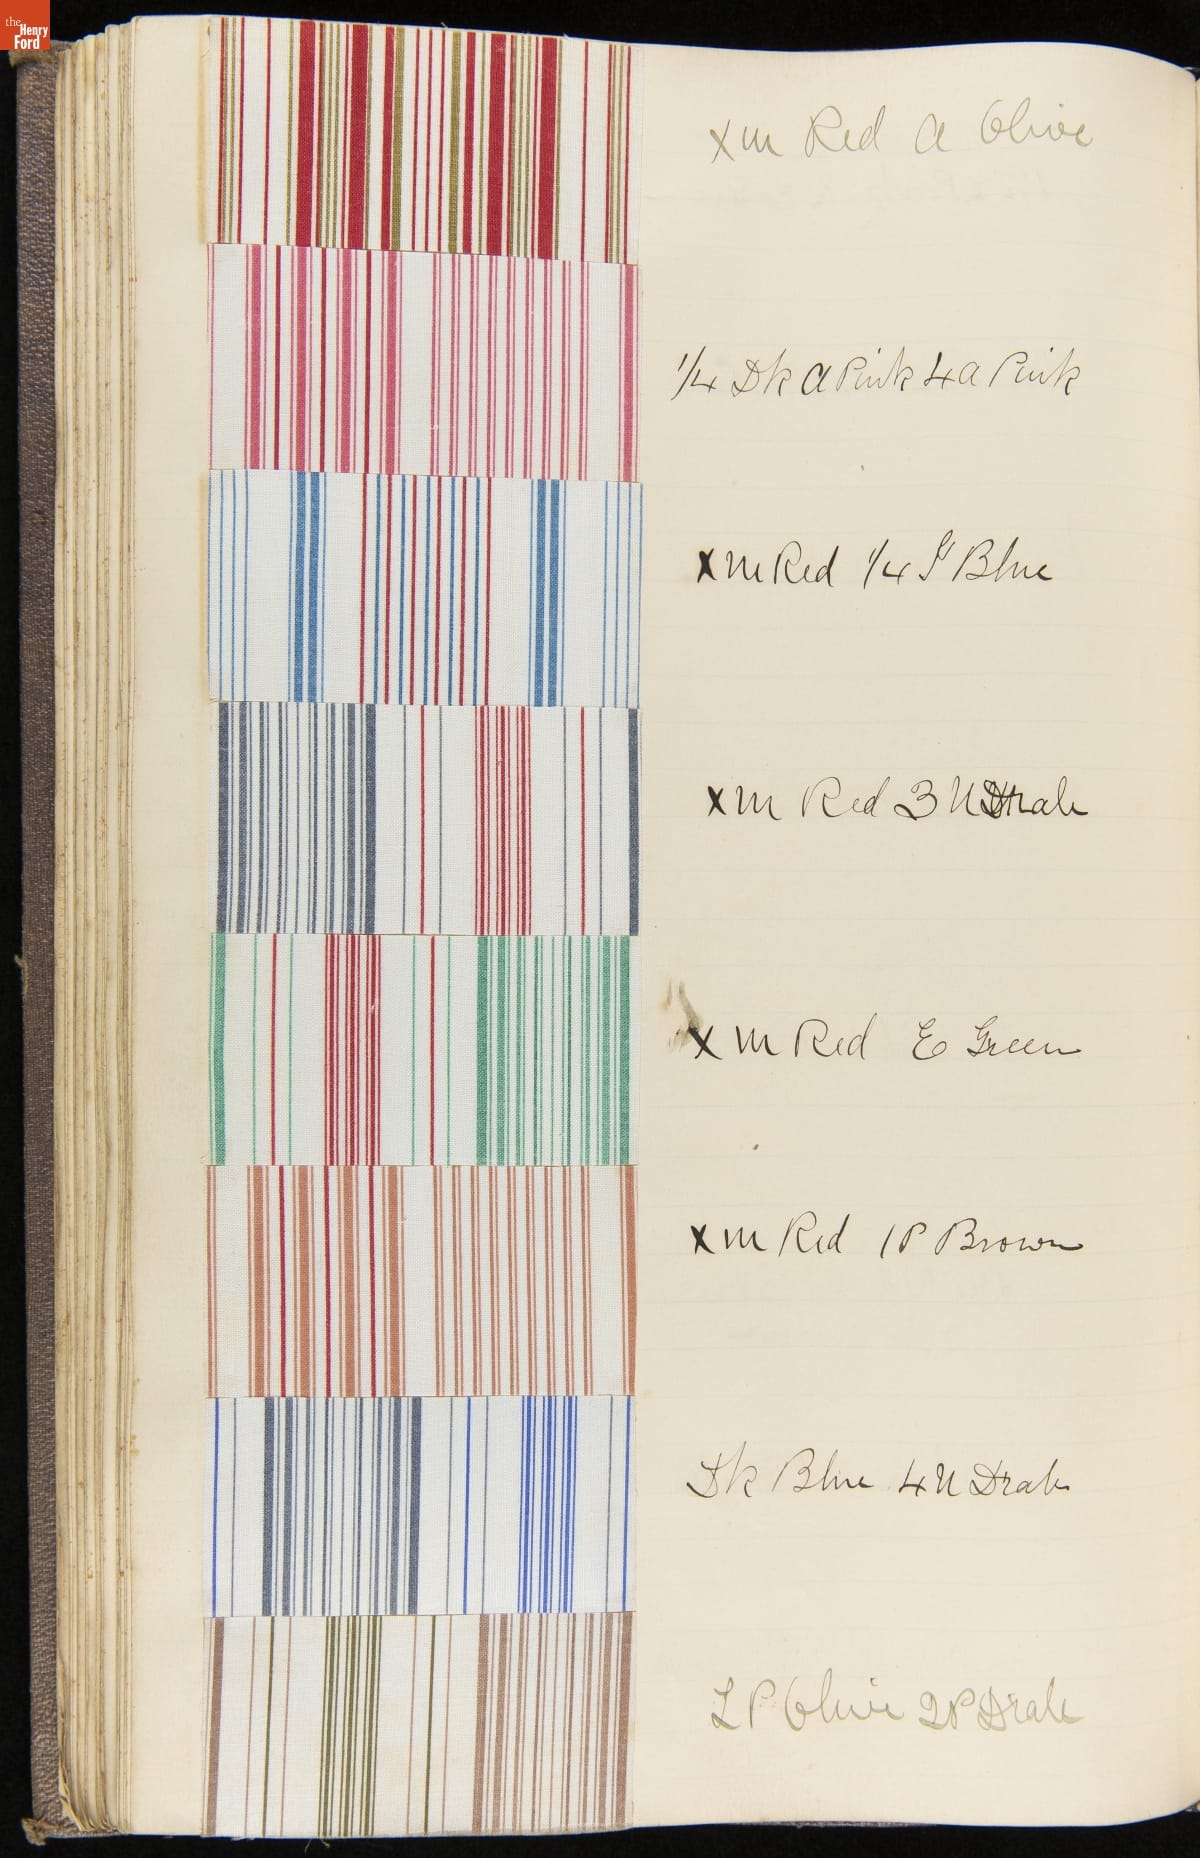 the
Henry
Ford
xm Red A Olive
1/4 Dk A Pink 4A Pink
xm Red 1/4 G Blue
xm Red 3 N Drab
xm Red E Green
xm Red 1P Brown
Dk Blue 4 N Drab
2 P Olive 2P Drab